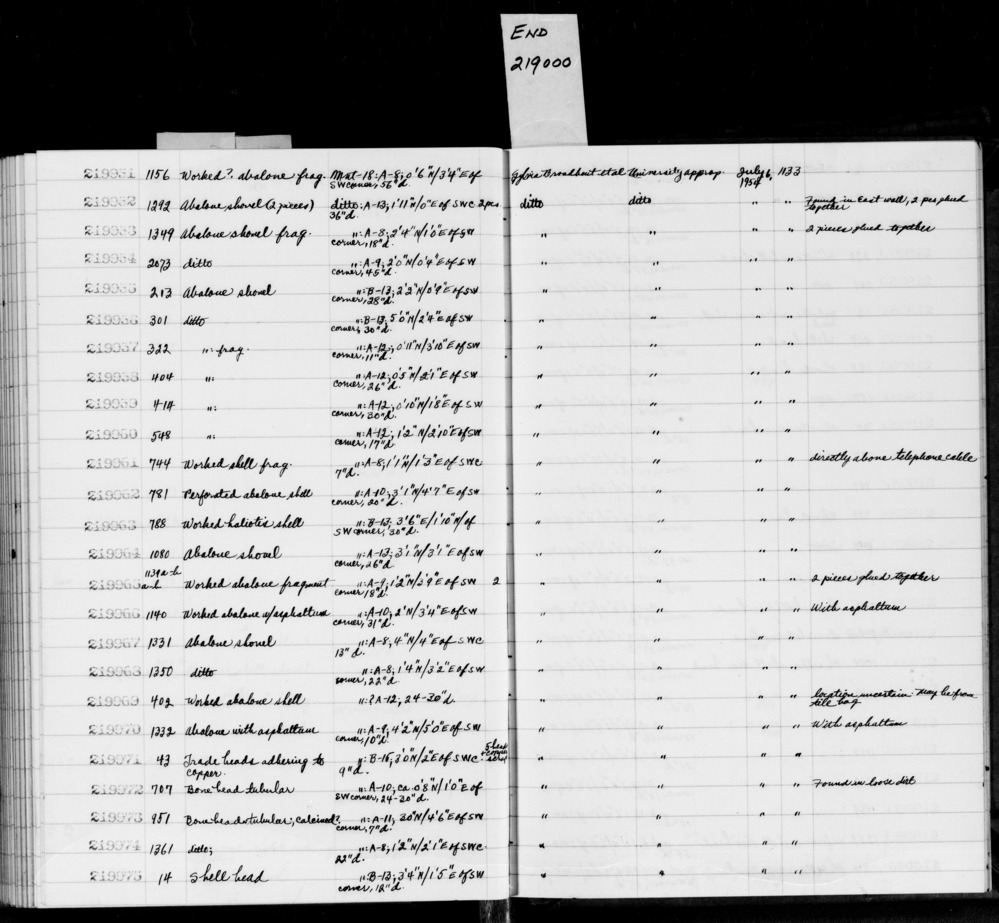 END
219000
219951 1156 Worked? abalone frag. Mnt-18: A-8; 0'6"N/3'4"E of SW corner, 56"d. Sylvia Broadbent et al University approp. July 6, 1954 1133
219952 1292 Abalone shovel (2 pieces) ditto: A-13; 1'11"N/0"E of SWC 36"d. 2 pcs ditto ditto " " Found in East wall, 2 pcs glued together
219953 1349 Abalone shovel frag. ": A-8; 2'4"N/1'0"E of SW corner, 18"d. " " " " 2 pieces glued together
219954 2073 ditto ": A-9; 2'0"N/0'9"E of SW corner, 45"d. " " " "
219955 213 Abalone shovel ": B-13; 2'2"N/0'9"E of SW corner, 28"d. " " " "
219956 301 ditto ": B-13; 5'0"N/2'4"E of SW corner, 30"d. " " " "
219957 322 ": frag. ": A-12; 0'11"N/3'10"E of SW corner, 11"d. " " " "
219958 404 ": ": A-12; 0'5"N/2'1"E of SW corner, 26"d. " " " "
219959 414 ": ": A-12; 0'10"N/1'8"E of SW corner, 30"d. " " " "
219960 548 ": ": A-12; 1'2"N/2'10"E of SW corner, 17"d. " " " "
219961 744 Worked shell frag. ": A-8; 1'1"N/1'3"E of SWC 7"d. " " " " directly above telephone cable
219962 781 Perforated abalone shell ": A-10; 3'1"N/4'7"E of SW corner, 20"d. " " " "
219963 788 Worked haliotis shell ": B-13; 3'6"E/1'10"N/of SW corner, 30"d. " " " "
219964 1080 Abalone shovel ": A-13; 3'1"N/3'1"E of SW corner, 26"d. " " " "
219965a-b 1139a-b Worked abalone fragment ": A-9, 1'2"N/3'9"E of SW corner 18"d. 2 " " " " 2 pieces glued together
219966 1140 Worked abalone w/asphaltum ": A-10; 2'N/3'4"E of SW corner, 31"d. " " " " With asphaltum
219967 1331 Abalone shovel ": A-8, 4"N/4"E of SWC 13"d. " " " "
219968 1350 ditto ": A-8; 1'4"N/3'2"E of SW corner, 22"d. " " " "
219969 402 Worked abalone shell ": ? A-12, 24-30"d. " " " " location uncertain: may be from till bag
219970 1332 Abalone with asphaltum ": A-9; 4'2"N/5'0"E of SW corner, 10"d. " " " " With asphaltum
219971 43 Trade beads adhering to copper. ": B-16; 3'0N/2"E of SWC 9"d. " " " "
219972 707 Bone bead tubular ": A-10; ca. 0'8"N/1'0"E of SW corner, 24-30"d. " " " " Found in loose dirt
219973 951 Bone bead tubular; calcined? ": A-11; 30"N/4'6"E of SW corner, 7"d. " " " "
219974 1361 ditto; ": A-8; 1'2"N/2'1"E of SWC 22"d. " " " "
219975 14 Shell bead ": B-13; 3'4"N/1'5"E of SW corner, 12"d. " " " "